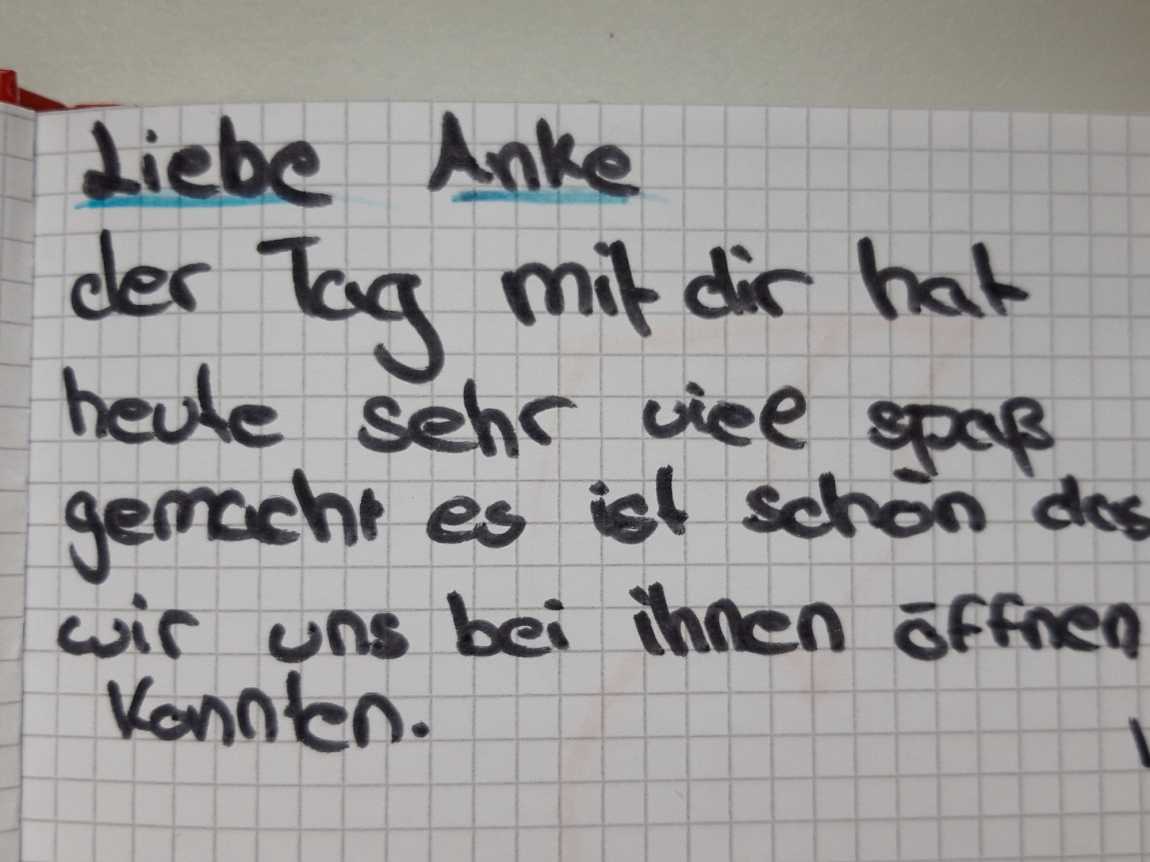 Liebe Anke
der Tag mit dir hat
heute sehr viel spaß
gemacht es ist schön das
wir uns bei ihnen öffnen
Konnten.